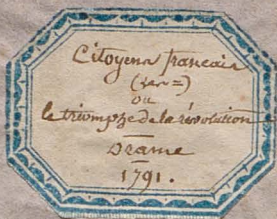 Citoyens francais
(les =)
ou
le triomphe de la révolution
Drame
1791.